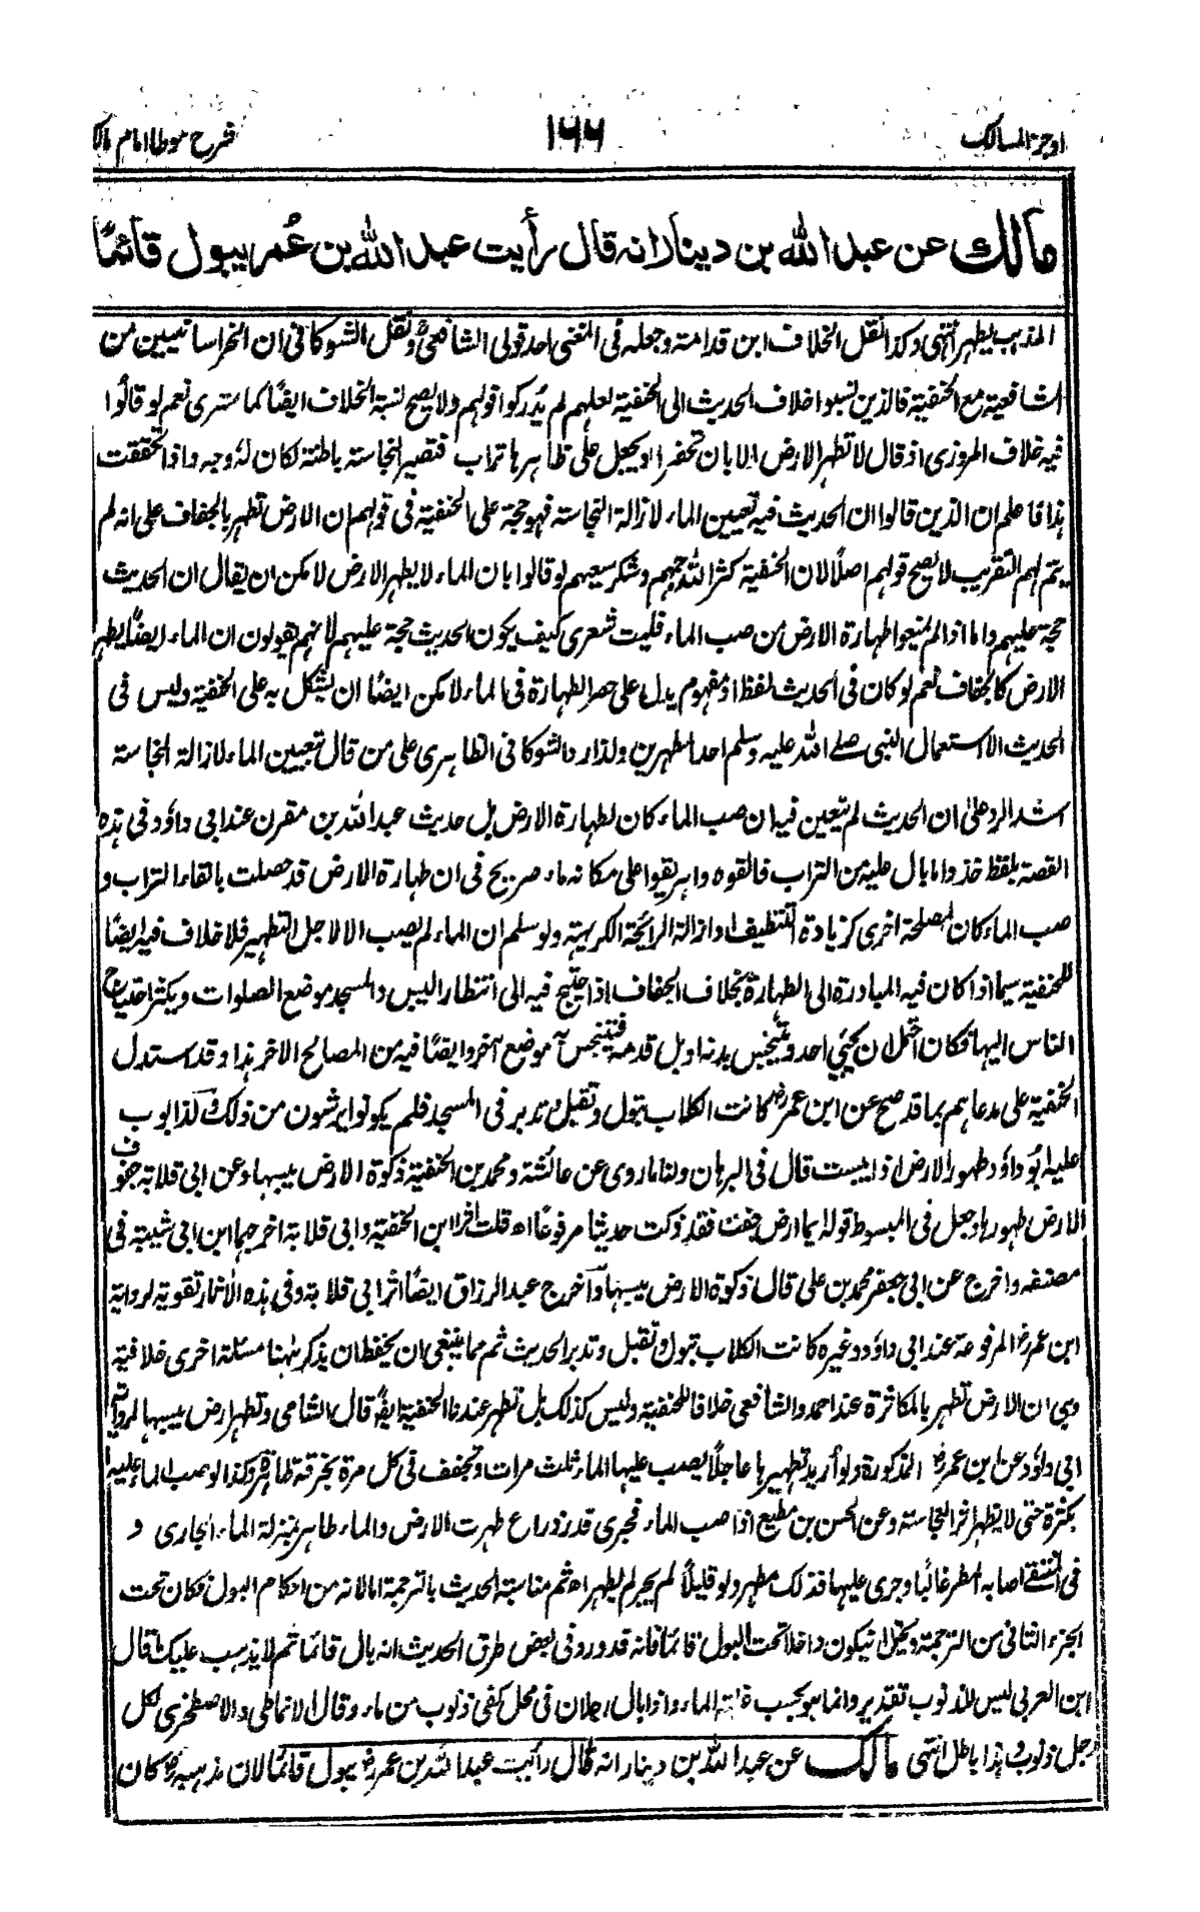 اوجز المسالك ١٦٦ شرح موطا امام مالك
مالك عن عبد الله بن دينار انه قال رأيت عبد الله بن عمر يبول قائمًا
المذهب يطهر انتهى وكذا نقل الخلاف ابن قدامة وجعله في المغنى احد قولى الشافعىؒ ونقل الشوكانى ان الخراسانيين من
الشافعية مع الحنفية فالذين نسبوا خلاف الحديث الى الحنفية لعلهم لم يدركوا قولهم ولا يصح نسبة الخلاف ايضًا كما سترى نعم لو قالوا
فيه خلاف المروزى اذ قال لا تطهر الارض الا بان تحفر او يجعل على ظاهرها تراب فتصير النجاسة باطنة لكان له وجه واذا تحققت
هذا فاعلم ان الذين قالوا ان الحديث فيه تعيين الماء لازالة النجاسة فهو حجة على الحنفية في قولهم ان الارض تطهر بالجفاف على انه لم
يتم لهم التقريب لا يصح قولهم اصلًا لان الحنفية كثر الله جمعهم وشكر سعيهم لو قالوا بان الماء لا يطهر الارض لامكن ان يقال ان الحديث
حجة عليهم واما اذا لم يمنعوا طهارة الارض من صب الماء فليت شعرى كيف يكون الحديث حجة عليهم لانهم يقولون ان الماء ايضًا يطهر
الارض كالجفاف نعم لو كان في الحديث لفظ او مفهوم يدل على حصر الطهارة في الماء لامكن ايضًا ان يشكل به على الحنفية وليس في
الحديث الا استعمال النبى صلے الله عليه وسلم احد المطهرين ولذا رد الشوكانى الظاهرى على من قال بتعيين الماء لازالة النجاسة
اشد الرد على ان الحديث لم يتعين فيه ان صب الماء كان لطهارة الارض بل حديث عبد الله بن مقرن عند ابى داؤد في هذه
القصة بلفظ خذوا ما بال عليه من التراب فالقوه واهريقوا على مكانه ماء صريح في ان طهارة الارض قد حصلت بالقاء التراب و
صب الماء كان لمصلحة اخرى كزيادة التنظيف او ازالة الرائحة الكريهة ولو سلم ان الماء لم يصب الا لاجل التطهير فلا خلاف فيه ايضًا
للحنفية سيما اذا كان فيه المبادرة الى الطهارة بخلاف الجفاف اذا احتيج فيه الى انتظار اليبس والمسجد موضع الصلوات ويكثر احتياج
الناس اليها فكان احتمل ان يجيئ احد ويتنجس بدنه او بل قدمه فتنجس موضع آخر وايضًا فيه من المصالح الاخر هذا وقد استدل
الحنفية على مدعاهم بما قد صح عن ابن عمرؓ كانت الكلاب تبول وتقبل وتدبر في المسجد فلم يكونوا يرشون من ذلك كذا بوب
عليه ابو داؤد طهور الارض اذا يبست قال في البرهان ولنا ما روى عن عائشة ومحمد بن الحنفية ذكوة الارض يبسها وعن ابى قلابة جفوف
الارض طهورها وجعل في المبسوط قوله ايما ارض جفت فقد ذكت حديثا مرفوعًا اه قلت اثرا ابن الحنفية وابى قلابة اخرجهما ابن ابى شيبة في
مصنفه واخرج عن ابى جعفر محمد بن على قال ذكوة الارض يبسها واخرج عبد الرزاق ايضًا اثر ابى قلابة وفى هذه الآثار تقوية لرواية
ابن عمرؓ المرفوعة عند ابى داؤد وغيره كانت الكلاب تبول وتقبل وتدبر الحديث ثم مما ينبغى ان يحفظ ان يذكر ههنا مسئلة اخرى خلافية
وهى ان الارض تطهر بالمكاثرة عند احمد والشافعى خلافا للحنفية وليس كذلك بل تطهر عندنا الحنفية ايضًا قال الشامى وتطهر ارض بيبسها لرواية
ابى داؤد عن ابن عمرؓ المذكورة ولو أريد تطهيرها عاجلًا يصب عليها الماء ثلث مرات وتجفف في كل مرة بخرقة طاهرة وكذا لو صب الماء عليه
بكثرة حتى لا يظهر اثر النجاسة وعن الحسن بن مطيع اذا صب الماء فجرى قدر ذراع طهرت الارض والماء طاهر بمنزلة الماء الجارى و
في المنتقى اصابها المطر غالبًا وجرى عليها فذلك مطهر ولو قليلًا لم يجر لم يطهر اه ثم مناسبة الحديث بالترجمة اما لانه من احكام البول فكان تحت
الجزء الثانى من الترجمة ويحتمل ان يكون داخلا تحت البول قائما فانه قد ورد في بعض طرق الحديث انه بال قائما ثم لا يذهب عليك قال
ابن العربى ليس للذنوب تقدير وانما هو بحسب الماء واذا بال رجلان في محل كفى ذنوب من ماء وقال الانماطى والاصطخرى لكل
رجل ذنوب وهذا باطل انتهى مالك عن عبد الله بن دينار انه قال رأيت عبد الله بن عمرؓ يبول قائمًا لان مذهبهؓ كان